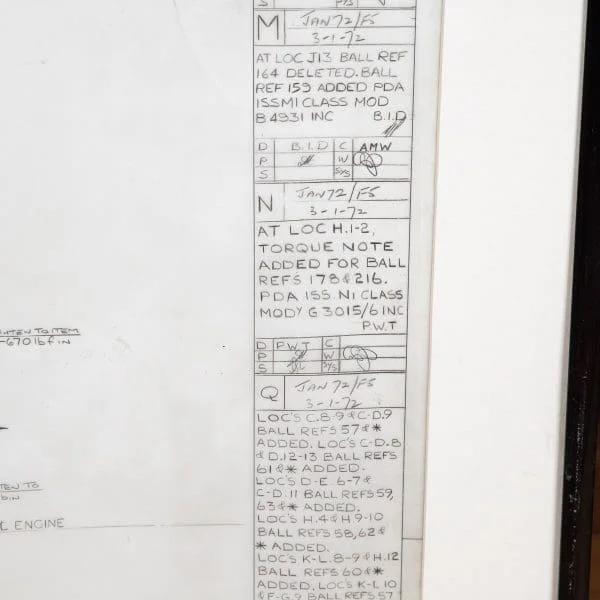 S P/S
M JAN 72/F5
3-1-72
AT LOC J13 BALL REF
164 DELETED. BALL
REF 159 ADDED PDA
ISSM1 CLASS MOD
B4931 INC B.I.D
D B.I.D C AMW
P W
S S/S
N JAN 72/F5
3-1-72
AT LOC H.1-2,
TORQUE NOTE
ADDED FOR BALL
REFS 178 & 216.
PDA ISS. N1 CLASS
MODY G 3015/6 INC
P.W.T
D P.W.T C
P W
S S/S
Q JAN 72/F5
3-1-72
LOC'S C.8-9 & C-D.9
BALL REFS 57 & *
ADDED. LOC'S C-D.8
& D.12-13 BALL REFS
61 & * ADDED.
LOC'S D-E. 6-7 &
C-D.11 BALL REFS 59,
63 & * ADDED.
LOC'S H.4 & H 9-10
BALL REFS 58,62 &
* ADDED.
LOC'S K-L.8-9 & H.12
BALL REFS 60 & *
ADDED, LOC'S K-L 10
& F-G.9 BALL REFS 57
TEN TO ITEM
-670 lbf in
TEN TO
in
ENGINE